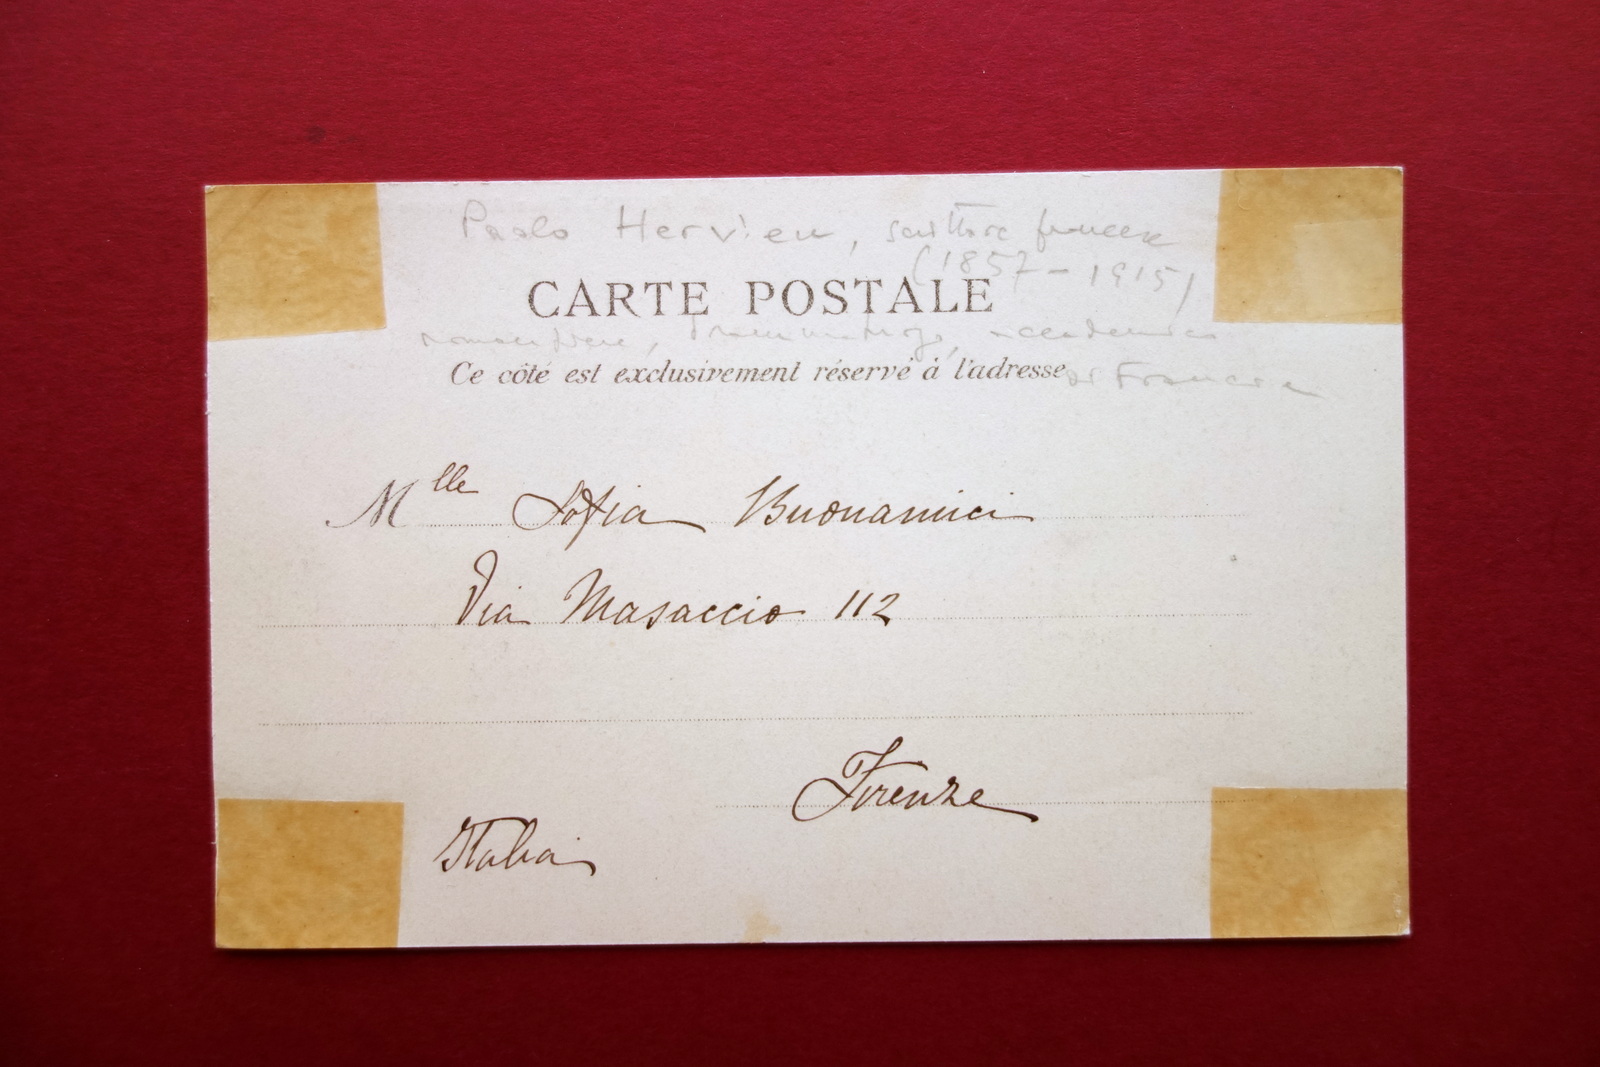 Paolo Hervieu, scrittore francese
(1857-1915)
CARTE POSTALE
romanziere, drammaturgo, accademico
Ce côté est exclusivement réservé à l'adresse
di Francia
Mlle Sofia Buonamici
Via Masaccio 112
Firenze
Italia